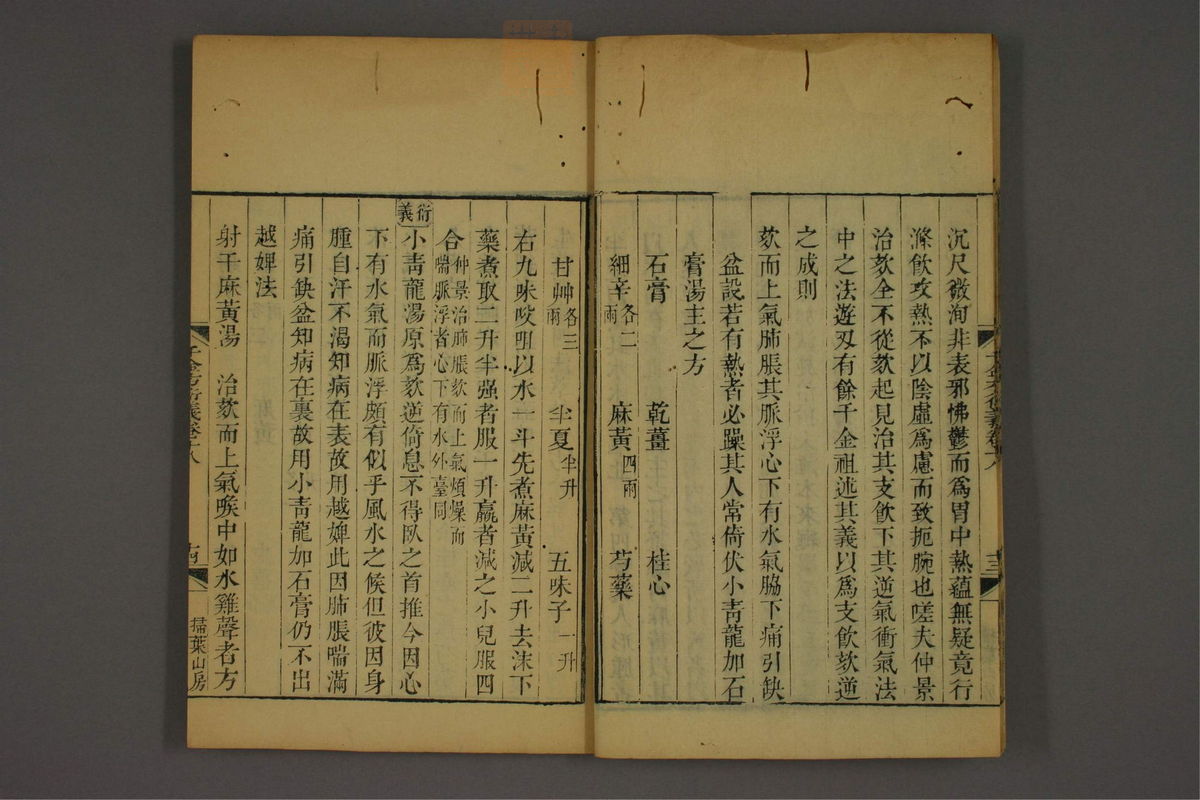 沉尺微洵非表邪怫鬱而爲胃中熱蘊無疑竟行
滌飲攻熱不以陰虛爲慮而致扼腕也嗟夫仲景
治欬全不從欬起見治其支飲下其逆氣衝氣法
中之法遊刃有餘千金祖述其義以爲支飲欬逆
之成則
欬而上氣肺脹其脈浮心下有水氣脇下痛引缺
盆設若有熱者必躁其人常倚伏小靑龍加石
膏湯主之方
石膏 乾薑 桂心
細辛各二兩 麻黃四兩 芍藥
甘艸各三兩 半夏半升 五味子一升
右九味㕮咀以水一斗先煮麻黃減二升去沫下
藥煮取二升半强者服一升羸者減之小兒服四
合仲景治肺脹欬而上氣煩燥而
喘脈浮者心下有水外臺同
衍義小靑龍湯原爲欬逆倚息不得臥之首推今因心
下有水氣而脈浮頗有似乎風水之候但彼因身
腫自汗不渴知病在表故用越婢此因肺脹喘滿
痛引缺盆知病在裏故用小靑龍加石膏仍不出
越婢法
射干麻黃湯 治欬而上氣喉中如水雞聲者方
千金方衍義卷十八
十四
掃葉山房